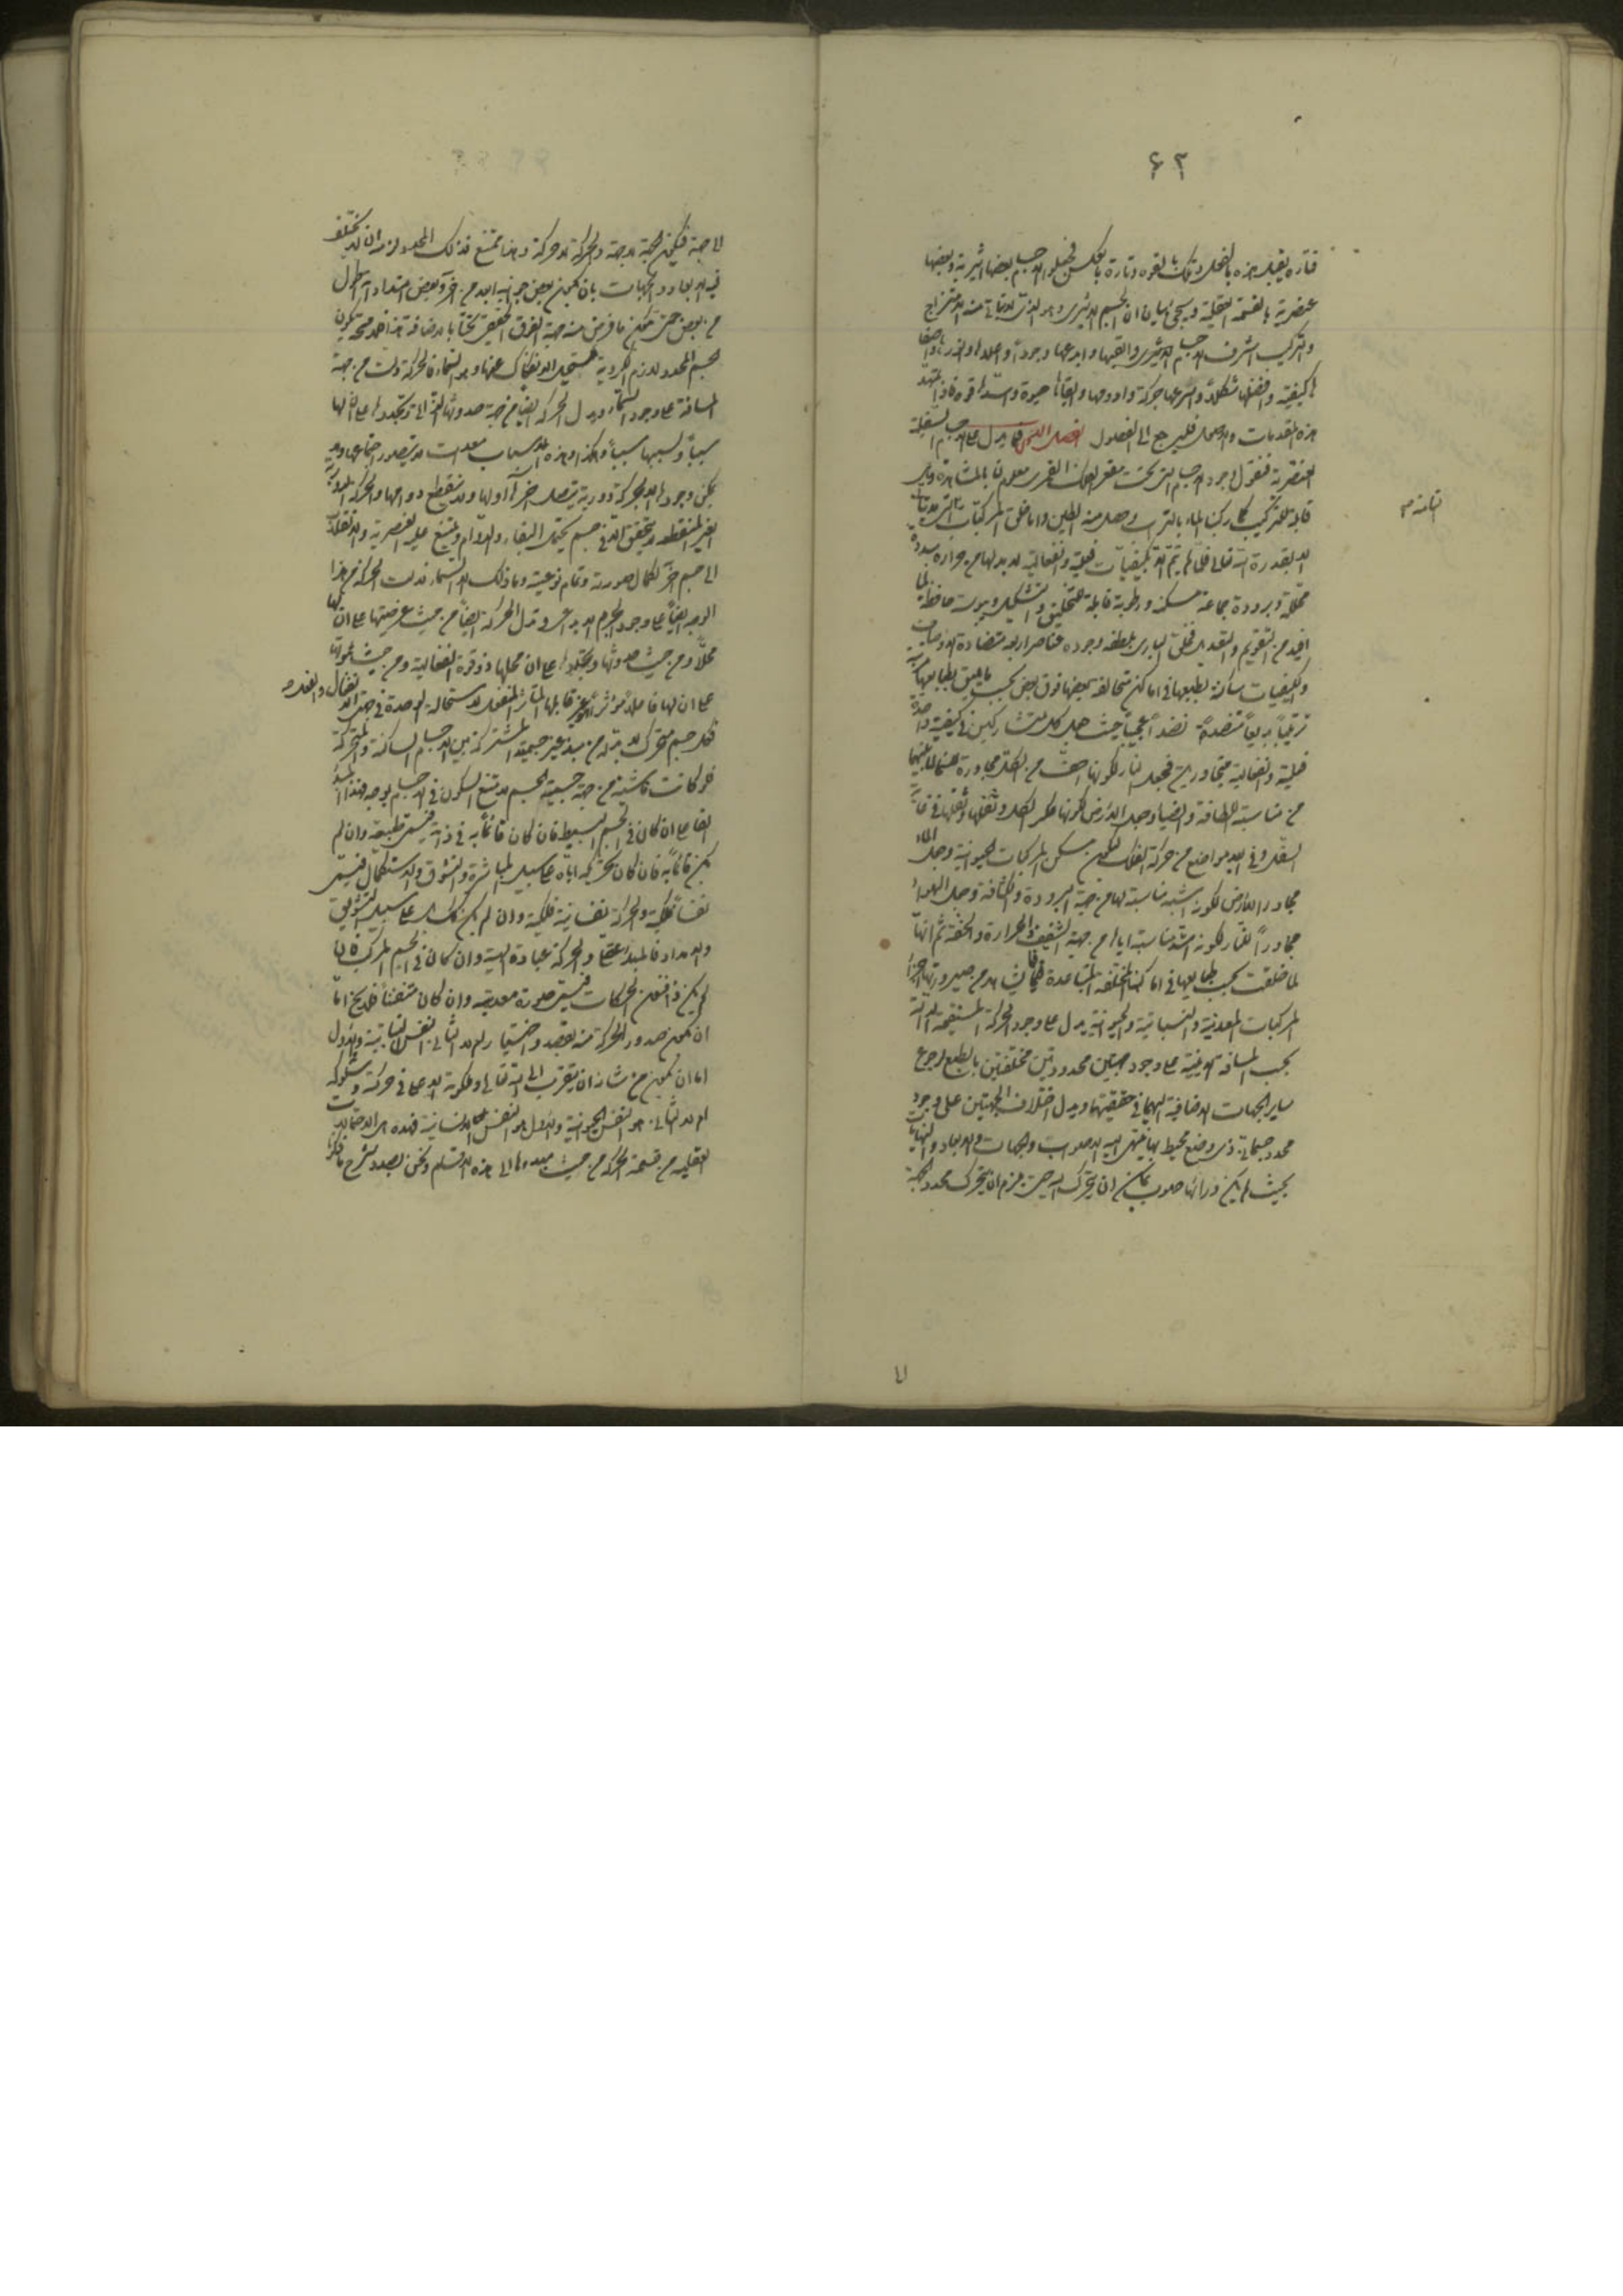 ۶۲
فتارة يقبل هذه بالفعل وتلك بالقوه وتارة بالعكس الاجسام بعضها اثيرية وبعضها
عنصرية بالقسمة العقلية وسيجئ بيان ان الجسم الاثيرى هو الذى منه الامتزاج
والتركيب اشرف الاجسام الاثيرى وابدعها وجوداً
كيفية وافضلها شكلاً واسرعها حركة وادومها حيوة واشدها قوة
هذه المقدمات والاصول فليرجع الى الفصول الفصل الثامن فيما يدل على الاجسام
العنصرية فنقول وجود الاجسام التى تحت مقعر فلك القمر معلوم لنا بالمشاهدة وهى
قابلة للتركيب كما ركبنا الماء بالتراب وحصل منه الطين واما خلق المركبات
الا بقدرة الله تعالى فلما لم يتم الا بكيفيات فعلية وانفعالية لابد لها من حرارة
محللة وبرودة جماعة مسكنة ورطوبة قابلة للتخليق والتشكيل ويبوسة حافظة لما
افيد من التقويم والتعديل فخلق البارى بلطفه وجوده عناصر اربعة متضادة الاوصاف
والكيفيات ساكنة بطبعها فى اماكن متخالفة بعضها فوق بعض بحسب ما يليق بطبايعها
ترتيباً بديعاً نضداً عجيباً حيث جعل كل متشاركين فى كيفية واحدة
فعلية وانفعالية متجاورين فجعل النار لكونها اخف من الكل مجاورة للسماء لما بينهما
من مناسبة اللطافة والضياء وجعل الارض لكونها عكر الكل وثفلها وثقلها فى غاية
السفل وفى ابعد مواضع من حركة الفلك لتكون مسكن المركبات الحيوانية وجعل الماء
مجاور الارض لكونه اشبه مناسبة لها من جهة البرودة والكثافة وجعل الهواء
مجاوراً للنار لكونه اشد مناسبة اياها من جهة الشفيف والحرارة والخفة ثم انها
لما خلقت بحسب طبايعها فى اماكنها المختلفة المتباعدة لابد من صيرورتها اجزاء
المركبات المعدنية والنباتية والحيوانية يدل على وجود الحركة المستقيمة الدالة
بحسب المسافة الاينية على وجود جهتين محدودتين مختلفتين بالطبع لرجوع
ساير الجهات الاضافية اليهما فى حقيقتهما ويدل اختلاف الجهتين على وجود
محدد جسمانى ذى وضع محيط بهما ينتهى اليه الصوب والجهات والابعاد والنهايات
بحيث لم يكن ورائها صوب يمكن ان يتحرك اليه حتى يلزم ان يتحرك محدد الجهة
لا
الثامن
لا جهة فتكون الجهة لا جهة والحركة لا حركة وهذا ممتنع فذلك المحدد لزم ان لا يختلف
فيه الابعاد والجهات بان يكون بعض جوانبه ابعد من آخر وبعض امتداداته اطول
من بعض حتى يكون ما فرض منه جهة الفوق الحقيقى تحتاً بالاضافة
الجسم المحدد لازم الكروية مستحيل الانفكاك عنها وهو السماء فالحركة دلت من جهة
المسافة على وجود السماء ويدل الحركة ايضاً من جهة حدوثها وتجددها على ان لها
سبباً ولسببها سبباً وهكذا وهذه الاسباب معدات لا يتصور اجتماعها ولا
يمكن وجودها الا بحركة دورية يتصل آخرها اولها ولا ينقطع دوامها والحركة الدورية
الغير المنقطعة لا يتحقق الا فى جسم يحتمل البقاء والدوام ويمتنع عليه العنصرية والانقلاب
الى جسم آخر لكمال صورته وتمام نوعيته وما ذلك الا السماء فدلت الحركة من هذا
الوجه ايضاً على وجود الجرم الابداعى وتدل الحركة ايضاً من حيث عرضيتها على ان لها
محلاً ومن حيث حدوثها وتجددها على ان محلها ذو قوة انفعالية ومن حيث
على ان لها فاعلاً مؤثراً غير قابلها المتاثر المنفعل لاستحالة الوحدة فى جهتى الانفعال والفعل
فكل جسم متحرك لابد له من مبدء غير جسمية المشتركة بين الاجسام الساكنة والمتحركة
فلو كانت ناشية من جهة جسمية الجسم لامتنع السكون فى الاجسام لوجه فهذا المبدء
الفاعل ان كان فى الجسم البسيط فان كان قائماً به فى ذاته فيسمى طبيعة وان لم
يكن قائماً به فان كان تحريكه اياه على سبيل المباشرة والتشوق والاستكمال فيسمى
نفساً فلكية والحركة نفسانية فلكية وان لم يكن كذلك بل على سبيل التشويق
والامداد فالمبدء عقلى والحركة عبادة الهية وان كان فى الجسم المركب فما
لم يكن ذا تفنن الحركات فيسمى صورة معدنية وان كان متفنناً فلا يخ اما
ان يكون صدور الحركة منه بقصد واختيار ام لا الثانى النفس النباتية والاول
اما ان يكون من شانه ان يتقرب الى الله تعالى وملكوته الاعلى فى حركته وسلوكه
ام لا الثانى هو النفس الحيوانية والاول هو النفس الانسانية فهذه هى الاحتمالات
العقلية من قسمة الحركة من حيث مبدءها الى هذه الاقسام ونحن بصدد شرح